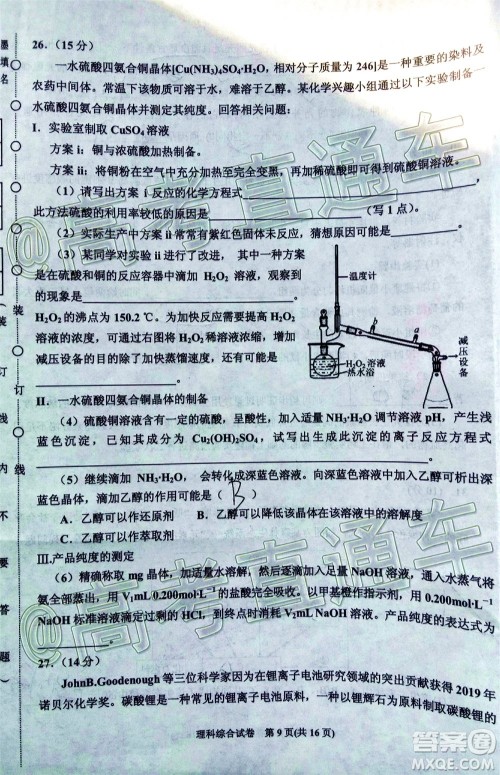 26.（15分）
一水硫酸四氨合铜晶体[Cu(NH3)4SO4·H2O，相对分子质量为 246]是一种重要的染料及
农药中间体。常温下该物质可溶于水，难溶于乙醇。某化学兴趣小组通过以下实验制备一
水硫酸四氨合铜晶体并测定其纯度。回答相关问题：
I. 实验室制取 CuSO4 溶液
方案 i：铜与浓硫酸加热制备。
方案 ii：将铜粉在空气中充分加热至完全变黑，再加稀硫酸即可得到硫酸铜溶液。
（1）请写出方案 i 反应的化学方程式
此方法硫酸的利用率较低的原因是（写 1 点）。
（2）实际生产中方案 ii 常常有紫红色固体未反应，猜想原因可能是
（3）某同学对实验 ii 进行了改进，其中一种方案
是在硫酸和铜的反应容器中滴加 H2O2 溶液，观察到
的现象是。
H2O2 的沸点为 150.2℃。为加快反应速度需要 H2O2
溶液的浓度，可通过右图将 H2O2 稀溶液浓缩，增加
减压设备的目的除了加快蒸馏速度，还有可能是
。
温度计
b
a
减压设备
H2O2 溶液
热水浴
II. 一水硫酸四氨合铜晶体的制备
（4）硫酸铜溶液含有一定的硫酸，呈酸性，加入适量 NH3·H2O 调节溶液 pH，产生浅
蓝色沉淀，已知其成分为 Cu2(OH)2SO4，试写出生成此沉淀的离子反应方程式
（5）继续滴加 NH3·H2O，会转化成深蓝色溶液。向深蓝色溶液中加入乙醇可析出深
蓝色晶体，滴加乙醇的作用可能是（ B ）
A．乙醇可以作还原剂 B．乙醇可以降低该晶体在该体系中的溶解度
C．乙醇可以作萃取剂
III.产品纯度的测定
（6）精确称取 mg 晶体，加适量水溶解，然后逐滴加入足量 NaOH 溶液，通入水蒸气将
氨全部蒸出，用 V1mL0.200mol·L-1 的盐酸完全吸收。以甲基橙作指示剂，用 0.200mol·L-1
NaOH 标准溶液滴定过剩的 HCl，到终点时消耗 V2mL NaOH 溶液。产品纯度的表达式为
。
27.（14分）
JohnB.Goodenough 等三位科学家因为在锂离子电池研究领域的突出贡献获得 2019 年
诺贝尔化学奖。碳酸锂是一种常见的锂离子电池原料，一种以锂辉石为原料制备碳酸锂的
理科综合试卷 第 9 页(共 16 页)
墨
填
名
装
订
线
内
不
要
答
题
@高考直通车
@高考直通车
答案圈
MXQE.COM